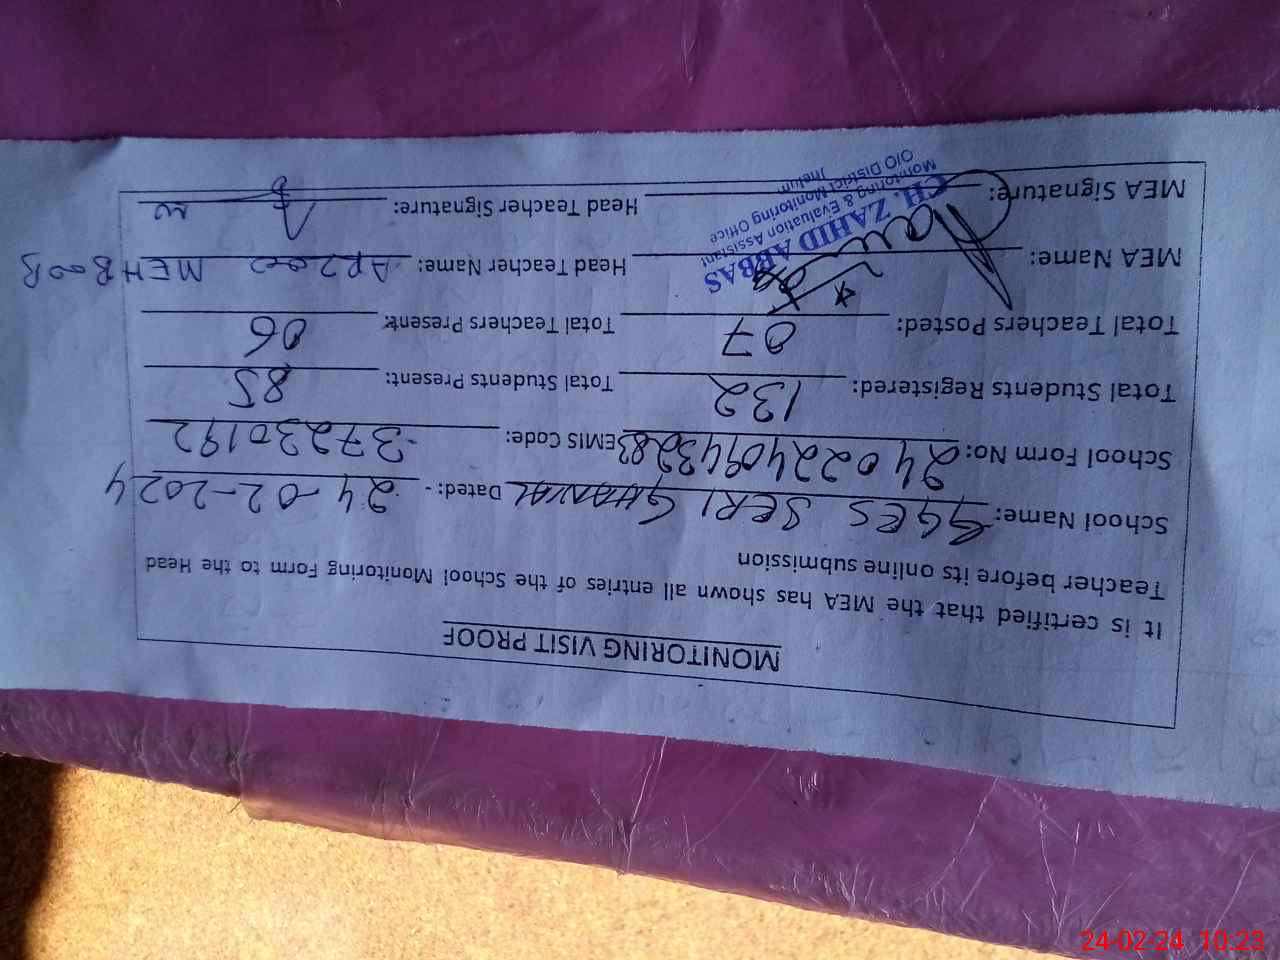 MONITORING VISIT PROOF
It is certified that the MEA has shown all entries of the School Monitoring Form to the Head
Teacher before its online submission
School Name: GGES SERI GHANIAL Dated: - 24-02-2024
School Form No: 24022409432283 EMIS Code: 37230192
Total Students Registered: 132 Total Students Present: 85
Total Teachers Posted: 07 Total Teachers Present: 06
MEA Name: Head Teacher Name: MEHBOOB
MEA Signature: Head Teacher Signature:
CH. ZAHID ABBAS
Monitoring & Evaluation Assistant
O/O District Monitoring Office
Jhelum
24-02-24 10:23